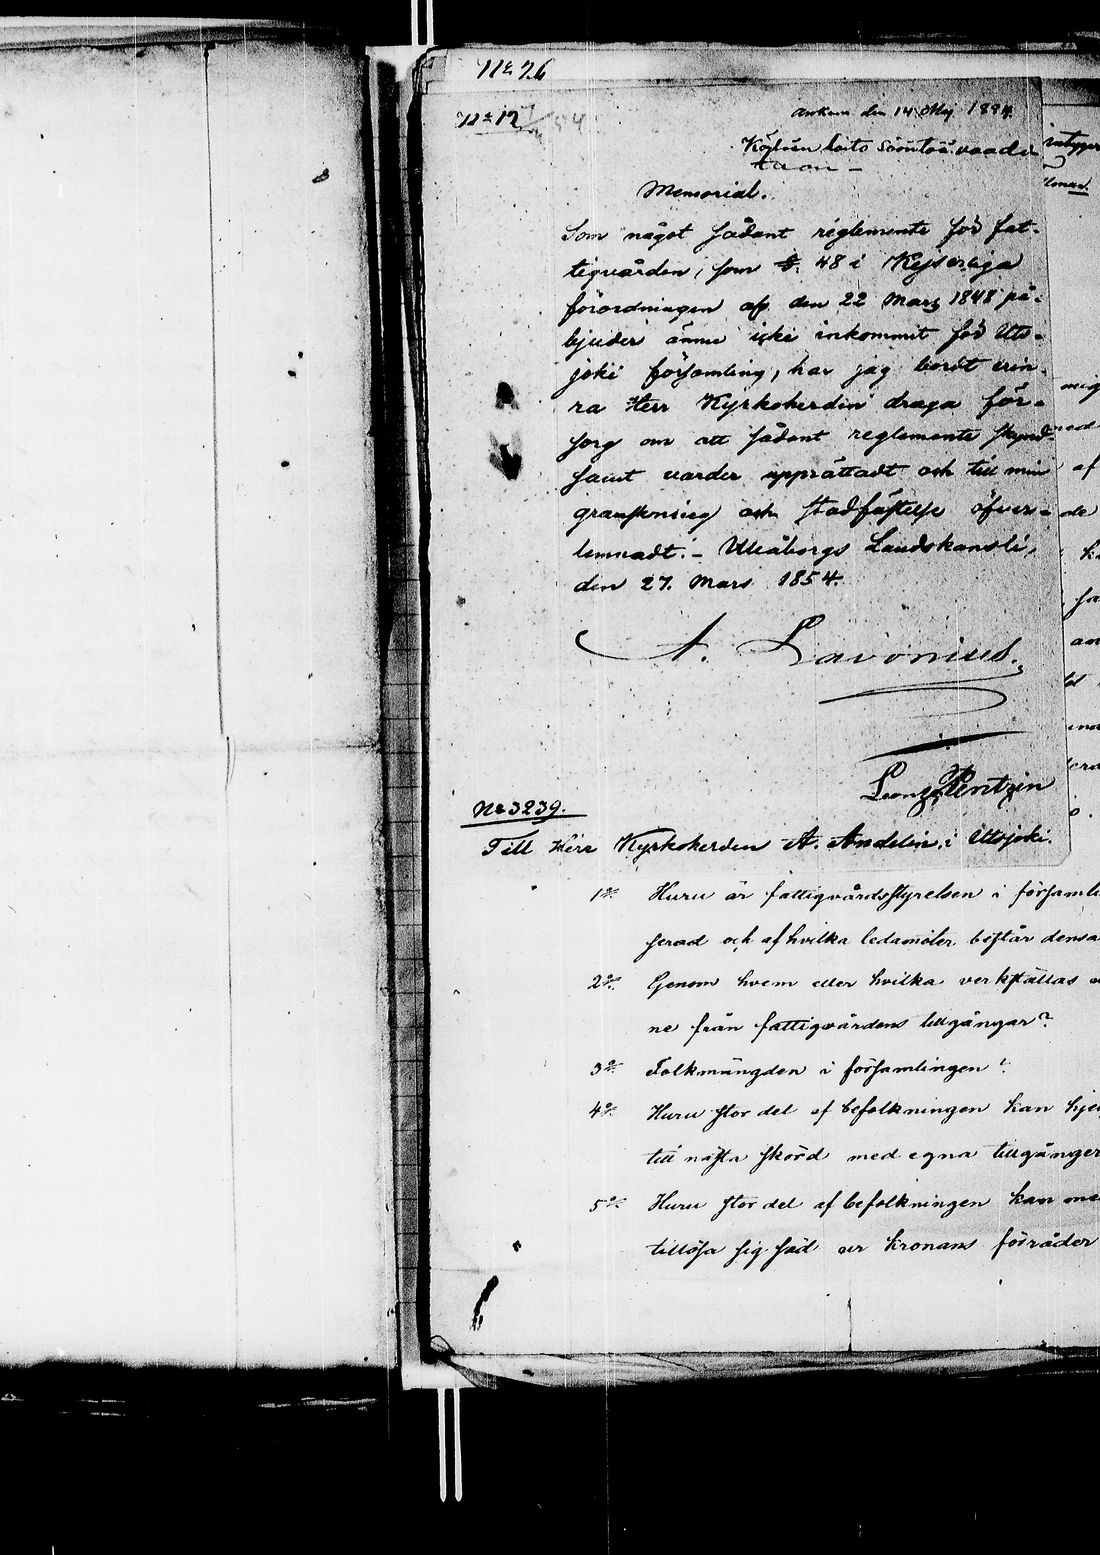 No 26
No 12
Ankom den 14 Maj 1854.
Memorial.
Som något sådant reglemente för fat-
tigvården, som §. 48 i Kejserliga
förordningen af den 22 Mars 1848 på-
bjuder ännu icke inkommit för Uts-
joki församling, har jag bordt erin-
ra Herr Kyrkoherden draga för-
sorg om att sådant reglemente skynd-
samt varder upprättadt och till min
granskning och stadfästelse öfver-
lemnadt. – Uleåborgs Landskansli,
den 27. Mars 1854.
A. Lavonius.
No 3239.
Till Herr Kyrkoherden A. Andelin i Utsjoki.
1o Huru är fattigvårdsstyrelsen i församli
serad och af hvilka ledamöter består densa
2o Genom hvem eller hvilka verkställas
ne från fattigvårdens tillgångar?
3o Folkmängden i församlingen?
4o Huru stor del af befolkningen kan hje
till nästa skörd med egna tillgångar
5o Huru stor del af befolkningen kan
tillösa sig säd ur kronans förråder